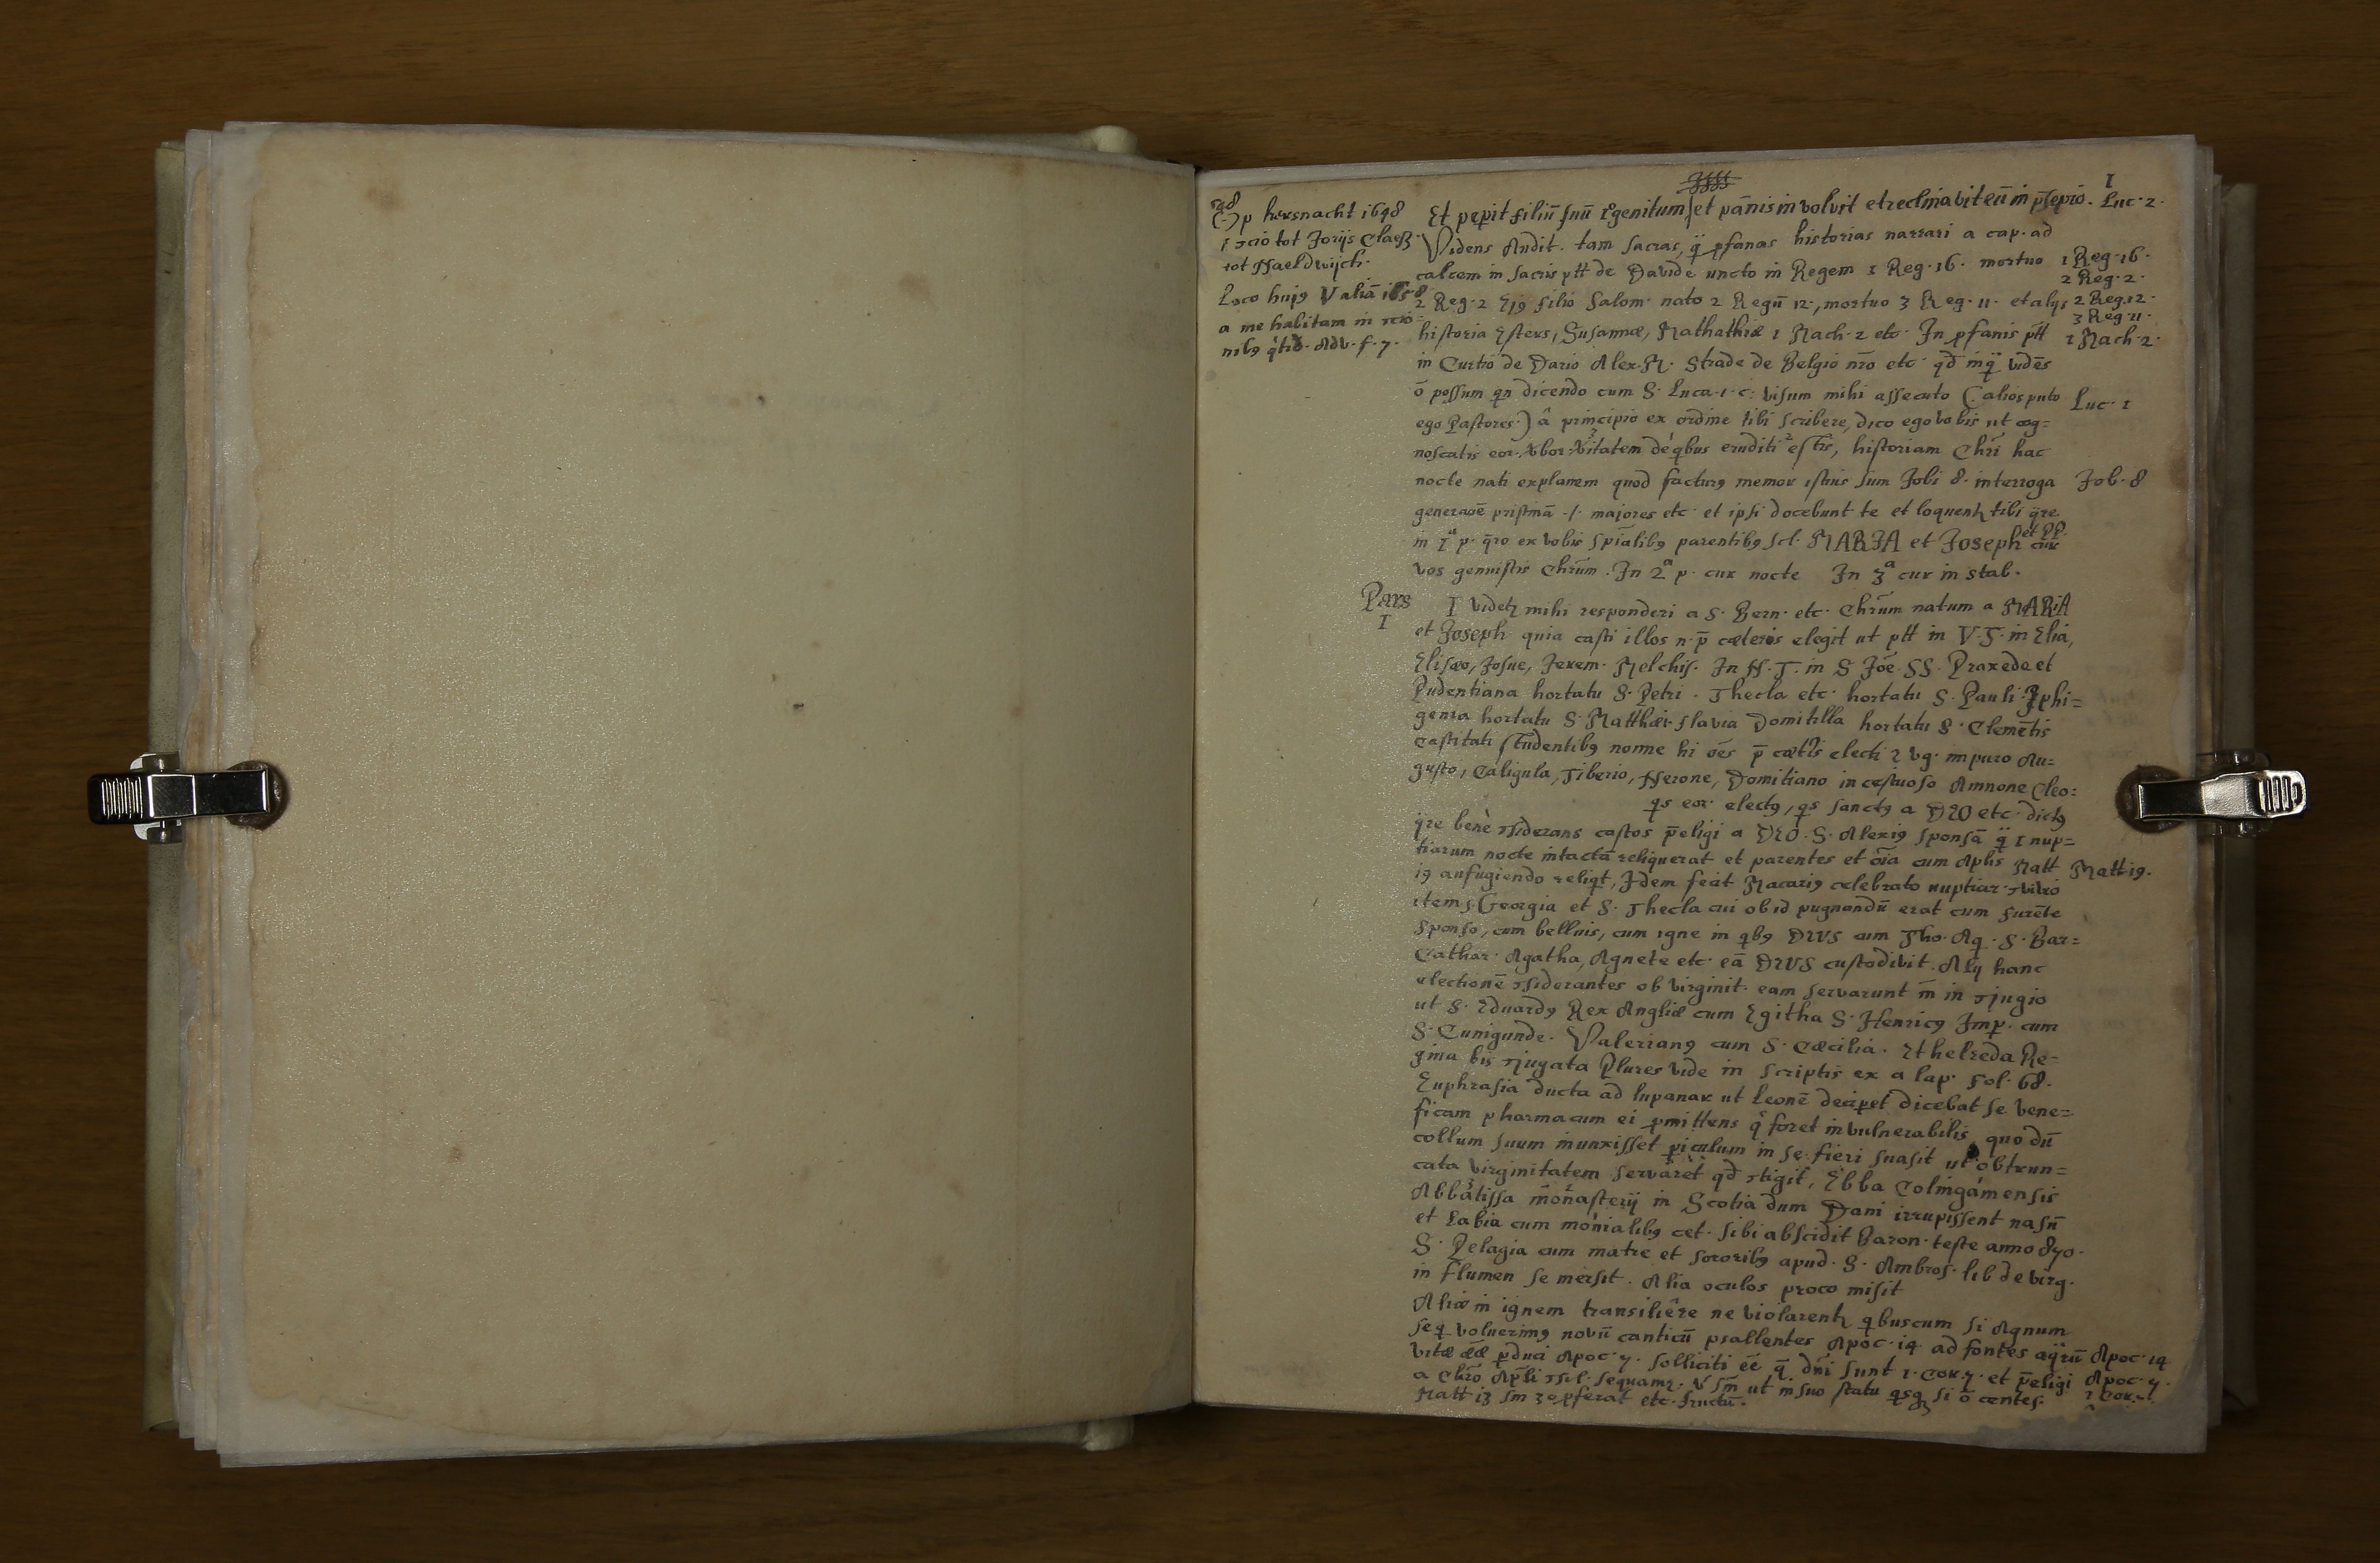 I
548
(-) p kersnacht 1648
1 ↄcio tot Jorijs Claeß.
tot Naeldwijch.
Loco huj9 Valiā 1658
a me habitam in ↄcio=
nib9 Adv. f. 7.
Et peperit filiū suū 1ogenitum et pānis involvit et reclinavit eū in p̄sepio. Luc. 2.
Videns Audit. tam sacras, q̄ pfanas historias narrari a cap. ad
calcem in sacris ptt de Davide uncto in Regem 1 Reg. 16. mortuo 1 Reg. 16.
2 Reg. 2.
2 Reg. 2 Ej9 filio Salom. nato 2 Regū 12, mortuo 3 Reg. 11. et alys 2 Reg. 12.
3 Reg 11.
historia Esters, Susannæ, Mathathiæ 1 Mach. 2 etc. In pfanis ptt 1 Mach. 2.
in Curtio de Dario Alex. M. Strade de Belgio nr̄o etc. qd̄ inq̄ vidēs
ō possum qn dicendo cum S. Luca. 1. c: visum mihi assecuto (alios puto Luc. 1
ego Pastores.) â principio ex ordine tibi scribere, dico ego vobis ut cog=
noscatis eor. vbor. vitatem de qbus eruditi estis, historiam Chr̄i hac
nocte nati explanem quod factur9 memor istius sum Jobi 8. interroga Job. 8
generaoē pristinā .i. majores etc. et ipsi docebunt te et loquent tibi q̄re
et PP.
in 1a p. q̄ro ex vobis spīalib9 parentib9 scl. MARIA et Joseph cur
vos genuistis Chr̄um. In 2a p. cur nocte In 3a cur in stab.
Pars
I
I Videt mihi responderi a S. Bern. etc. Chr̄um natum a MARIA
et Joseph quia casti illos n. p̄ cæteris elegit ut ptt in V. T. in Elia,
Elisæo, Josue, Jerem. Melchis. In N. T. in S Joē. SS. Praxede et
Pudentiana hortatu S. Petri. Thecla etc. hortatu S. Pauli. Iphi=
genia hortatu S. Matthæi. flavia Domitilla hortatu S. Clemētis
castitati studentib9 nonne hi oēs p̄ cæt̄is electi? vg. impuro Au=
gusto, Caligula, Tiberio, Nerone, Domitiano incestuoso Amnone Cleo:
qs eor. elect9, qs sanct9 a DEO etc. dict9
q̄re benè ↄsiderans castos p̄eligi a DEO. S. Alexi9 sponsā q̄ 1 nup=
tiarum nocte intactā reliquerat et parentes et oīa cum Aplis Matt Matt 19.
19 aufugiendo reliqt, Idem fecit Macari9 celebrato nuptiar. ↄvivio
item S. Georgia et S. Thecla cui ob id pugnandū erat cum furēte
sponso, cum belluis, cum igne in qb9 DEVS cum Tho. Aq. S. Bar=
Cathar. Agatha, Agnete etc. eā DEVS custodivit. Alij hanc
electionē ↄsiderantes ob virginit. eam servarunt m̄ in ↄjugio
ut S. Eduard9 Rex Angliæ cum Egitha S. Henric9 Imp. cum
S. Cunigunde. Valerian9 cum S. Cæcilia. Ethelreda Re=
gina bis ↄjugata Plures vide in scriptis ex a lap. fol. 68.
Euphrasia ducta ad lupanar ut leonē decipet dicebat se vene=
ficam pharmacum ei pmittens q̀ foret invulnerabilis, quo dū
collum suum inunxisset piculum in se fieri suasit ut obtrun=
cata virginitatem servaret qd̄ ↄtigit, Ebba Colingamensis
Abbatissa monasterij in Scotia dum Dani irrupissent nasū
et Labia cum monialib9 cet. sibi abscidit Baron. teste anno 870.
S. Pelagia cum matre et sororib9 apud. S. Ambros. lib de virg.
in flumen se mersit. Alia oculos proco misit
Aliæ in ignem transiliêre ne violarent qbuscum si Agnum
seq voluerim9 novū canticū psallentes Apoc. 14 ad fontes aq̄rū Apoc. 14
vitæ p̄duci Apoc. 7. solliciti ēē q̄ dn̄i sunt 1. Cor. 7. et p̄eligi Apoc. 7.
a Chr̄o sequam2. ut in suo statu qsq si ō centes. 1 Cor. 7
Matt 13 3o pferat etc. fructū.